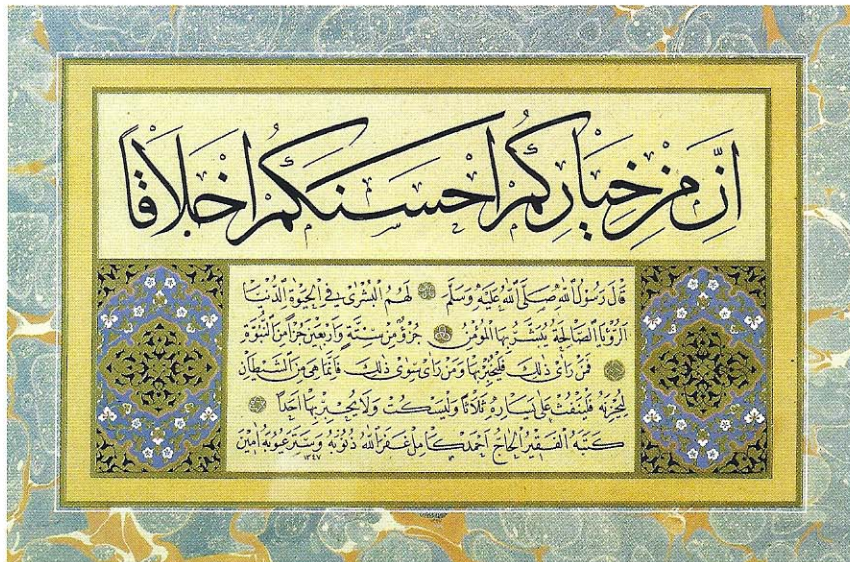 اِنَّ مِنْ خِيَارِكُمْ اَحْسَنَكُمْ اَخْلَاقاً
قَالَ رَسُولُ اللهِ صَلَّى اللهُ عَلَيْهِ وَسَلَّمَ لَهُمُ الْبُشْرٰى فِى الْحَيٰوةِ الدُّنْيَا
اَلرُّؤْيَا الصَّالِحَةُ يُبَشَّرُ بِهَا الْمُؤْمِنُ جُزْؤٌ مِنْ سِتَّةٍ وَاَرْبَعِينَ جُزْأً مِنَ النُّبُوَّةِ
فَمَنْ رَاٰى ذٰلِكَ فَلْيُخْبِرْ بِهَا وَمَنْ رَاٰى سِوٰى ذٰلِكَ فَاِنَّمَا هِىَ مِنَ الشَّيْطَانِ
لِيُحْزِنَهُ فَلْيَنْفُثْ عَلٰى يَسَارِهِ ثَلَاثاً وَلْيَسْكُتْ وَلَا يُخْبِرْ بِهَا اَحَداً
كَتَبَهُ الْفَقِيرُ الْحَاجُّ اَحْمَدْ كَامِلْ غَفَرَ اللهُ ذُنُوبَهُ وَسَتَرَ عُيُوبَهُ اٰمِينَ
١٣٤٧